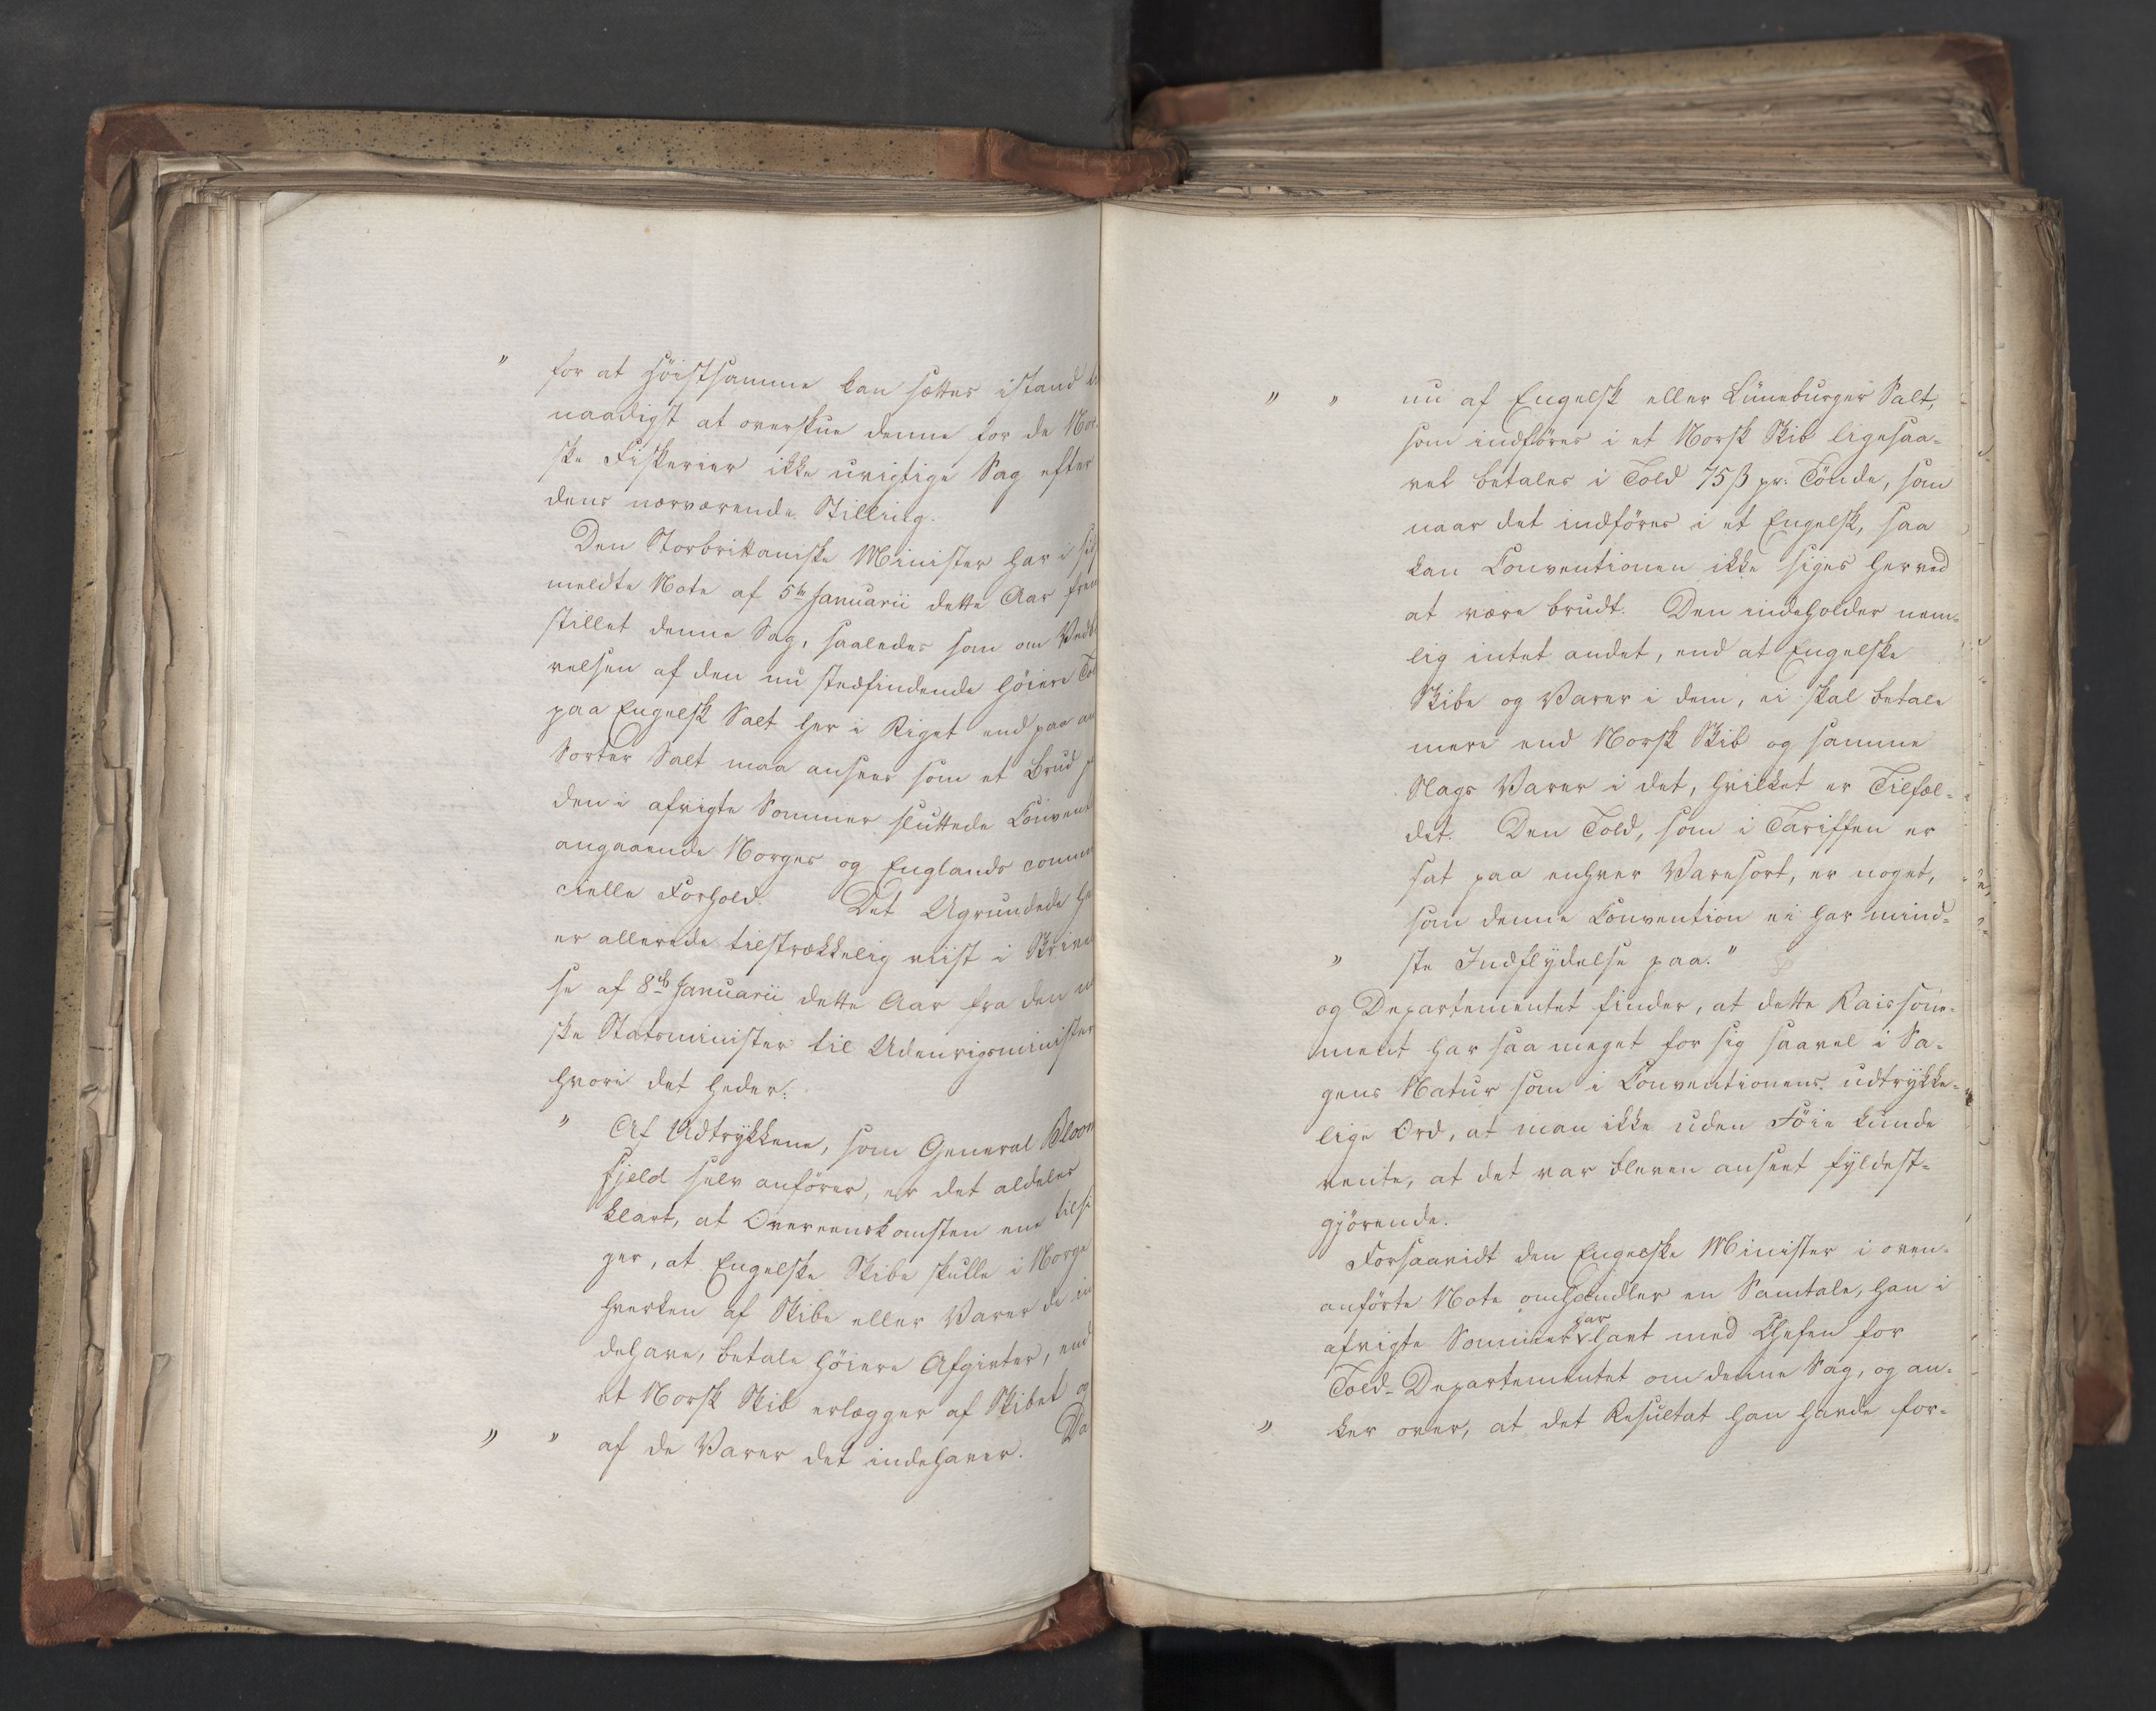 " for at Høistsamme kan sættes istand
naadigst at overskue denne for de Nor-
ske Fiskerier ikke uvigtige Sag efter
dens nærværende Stilling.
Den Storbrittaniske Minister har i sid
meldte Note af 5te Januarii dette Aar frem
stillet denne Sag, saaledes som om Vedb
velsen af den nu stedfindende høiere Tol
paa Engelsk Salt her i Riget end paa an
Sorter Salt maa ansees som et Brud p
den i afvigte Sommer sluttede Convent
angaaende Norges og Englands comme
cielle Forhold. Det Ugrundede he
er allerede tilstrækkelig viist i Skrivel
se af 8de Januarii dette Aar fra den no
ske Statsminister til Udenrigsminister
hvori det heder:
" Af Udtrykkene, som General Bloom
fjeld selv anfører, er det aldeles
klart, at Overeenskomsten ene tilsi
ger, at Engelske Skibe skulle i Norge
hverken af Skibe eller Varer de in
dehave, betale høiere Afgivter, end
et Norsk Skib erlægger af Skibet og
" " af de Varer det indehaver. Da
" " nu af Engelsk eller Lüneburger Salt,
som indføres i et Norsk Skib ligesaa-
vel betales i Told 75ß pr: Tønde, som
naar det indføres i et Engelsk, saa
kan Conventionen ikke siges herved
at være brudt. Den indeholder nem-
lig intet andet, end at Engelske
Skibe og Varer i dem, ei skal betale
mere end Norsk Skib og samme
Slags Varer i det, hvilket er Tilfæl-
det. Den Told, som i Tariffen er
sat paa enhver Varesort, er noget,
som denne Convention ei har mind-
" ste Indflydelse paa."
og Departementet finder, at dette Raisonne-
ment har saa meget for sig saavel i Sa-
gens Natur som i Conventionens udtrykke-
lige Ord, at man ikke uden Føie kunde
vente, at det var bleven anseet fyldest-
gjørende.
Forsaavidt den Engelske Minister i oven-
anførte Note omhandler en Samtale, han i
afvigte Sommer har havt med Chefen for
Told-Departementet om denne Sag, og an-
" ker over, at det Resultat han havde for-